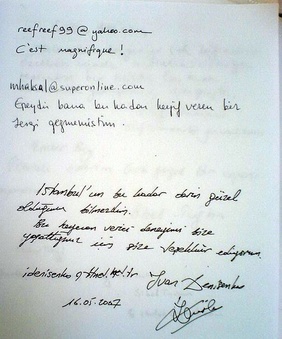 reefreef99@yahoo.com
C'est magnifique!
mhaksal@superonline.com
Epeydir bana bu kadar keyif veren bir
sergi gezmemiştim.
İstanbul'un bu kadar derin güzel
olduğunu bilmezdim.
Bu heyecan verici deneyimi bize
yaşattığınız için size teşekkür ediyorum.
Ivan Denisenko
16.05.2007